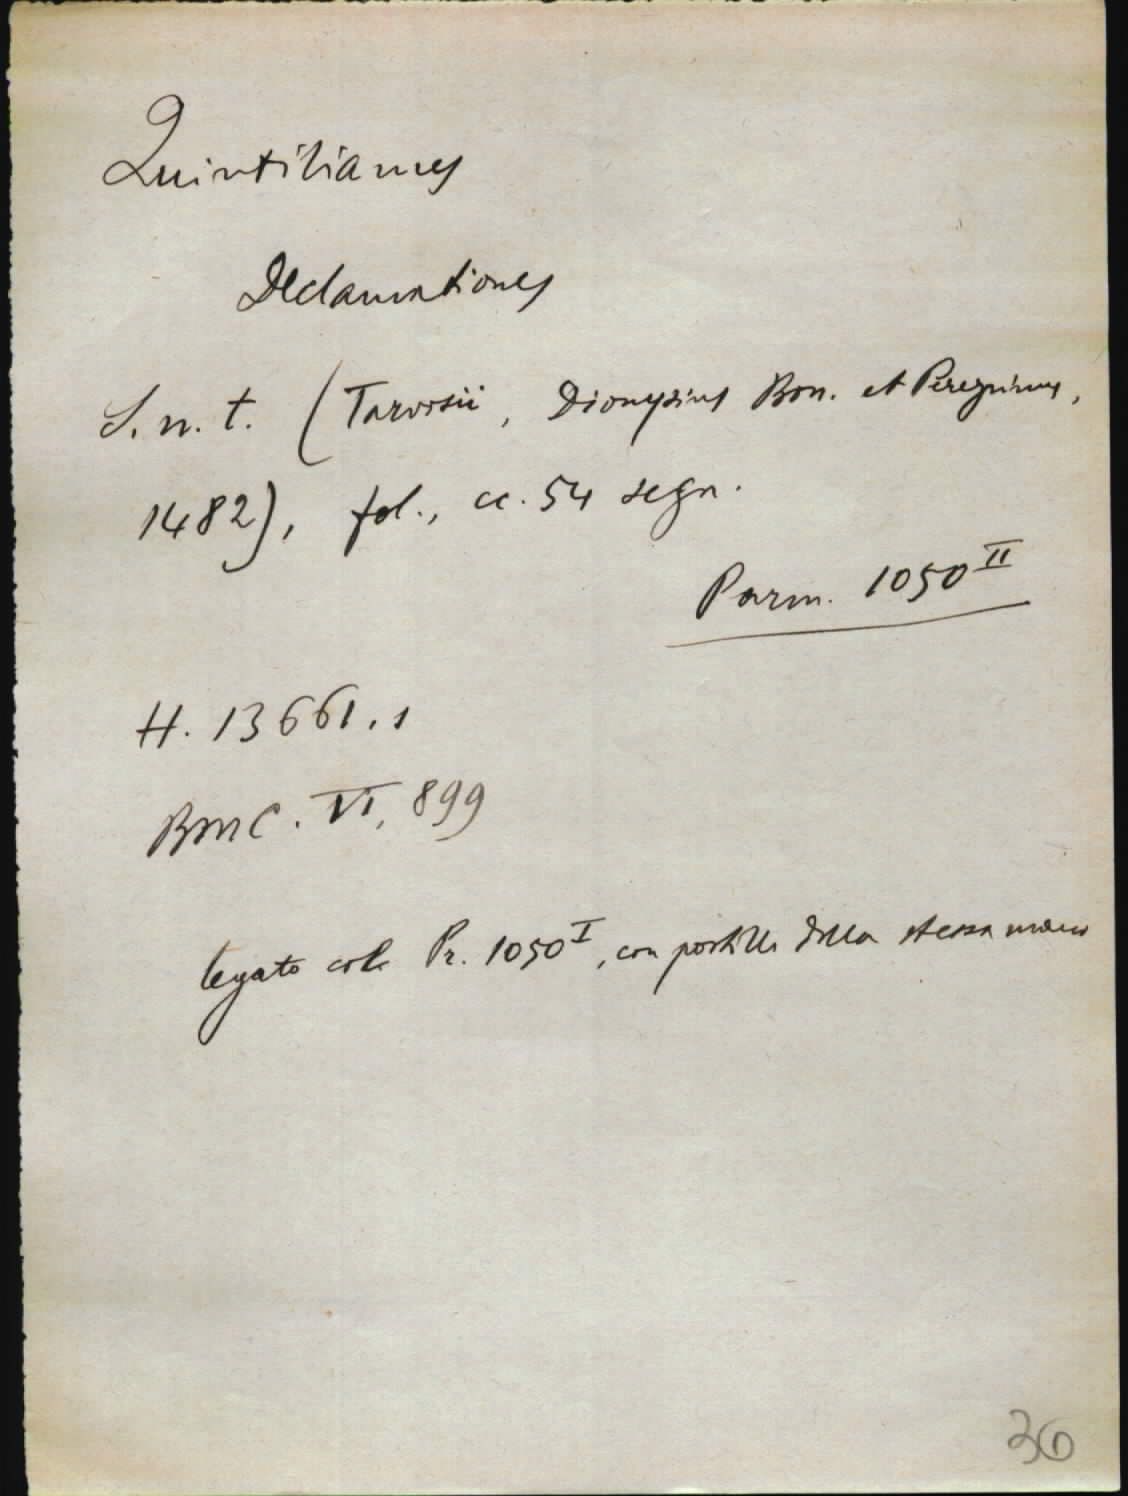 Quintilianus
Declamationes
S. n. t. (Tarvisii, Dionysius Bon. et Peregrinus,
1482), fol., cc. 54 segn.
Parm. 1050 II
H. 13661.1
BMC. VI, 899
legato col Pr. 1050 I, con postille della stessa mano
36